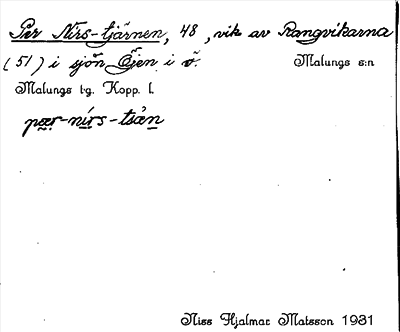 Per Nirs-tjärnen, 48, vik av Rangvikarna
(51) i sjön Öjen i ö. Malungs s:n
Malungs tg. Kopp. l.
pær-nírs-tsàn
Niss Hjalmar Matsson 1931